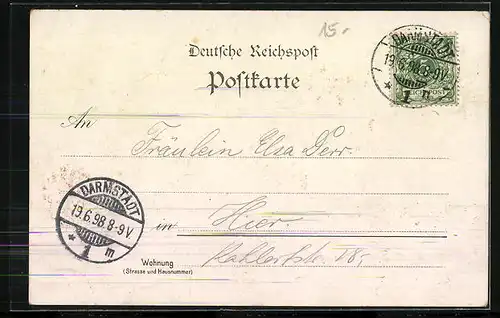 15.-
DARMSTADT
19.6.98.8-9V
* 1 m
REICHSPOST
Deutsche Reichspost
Postkarte
An
Fräulein Elsa Derr.
DARMSTADT
19.6.98.8-9V
* 1 m
in Hier.
Wohnung
(Strasse und Hausnummer)
Kahlertstr. 18,